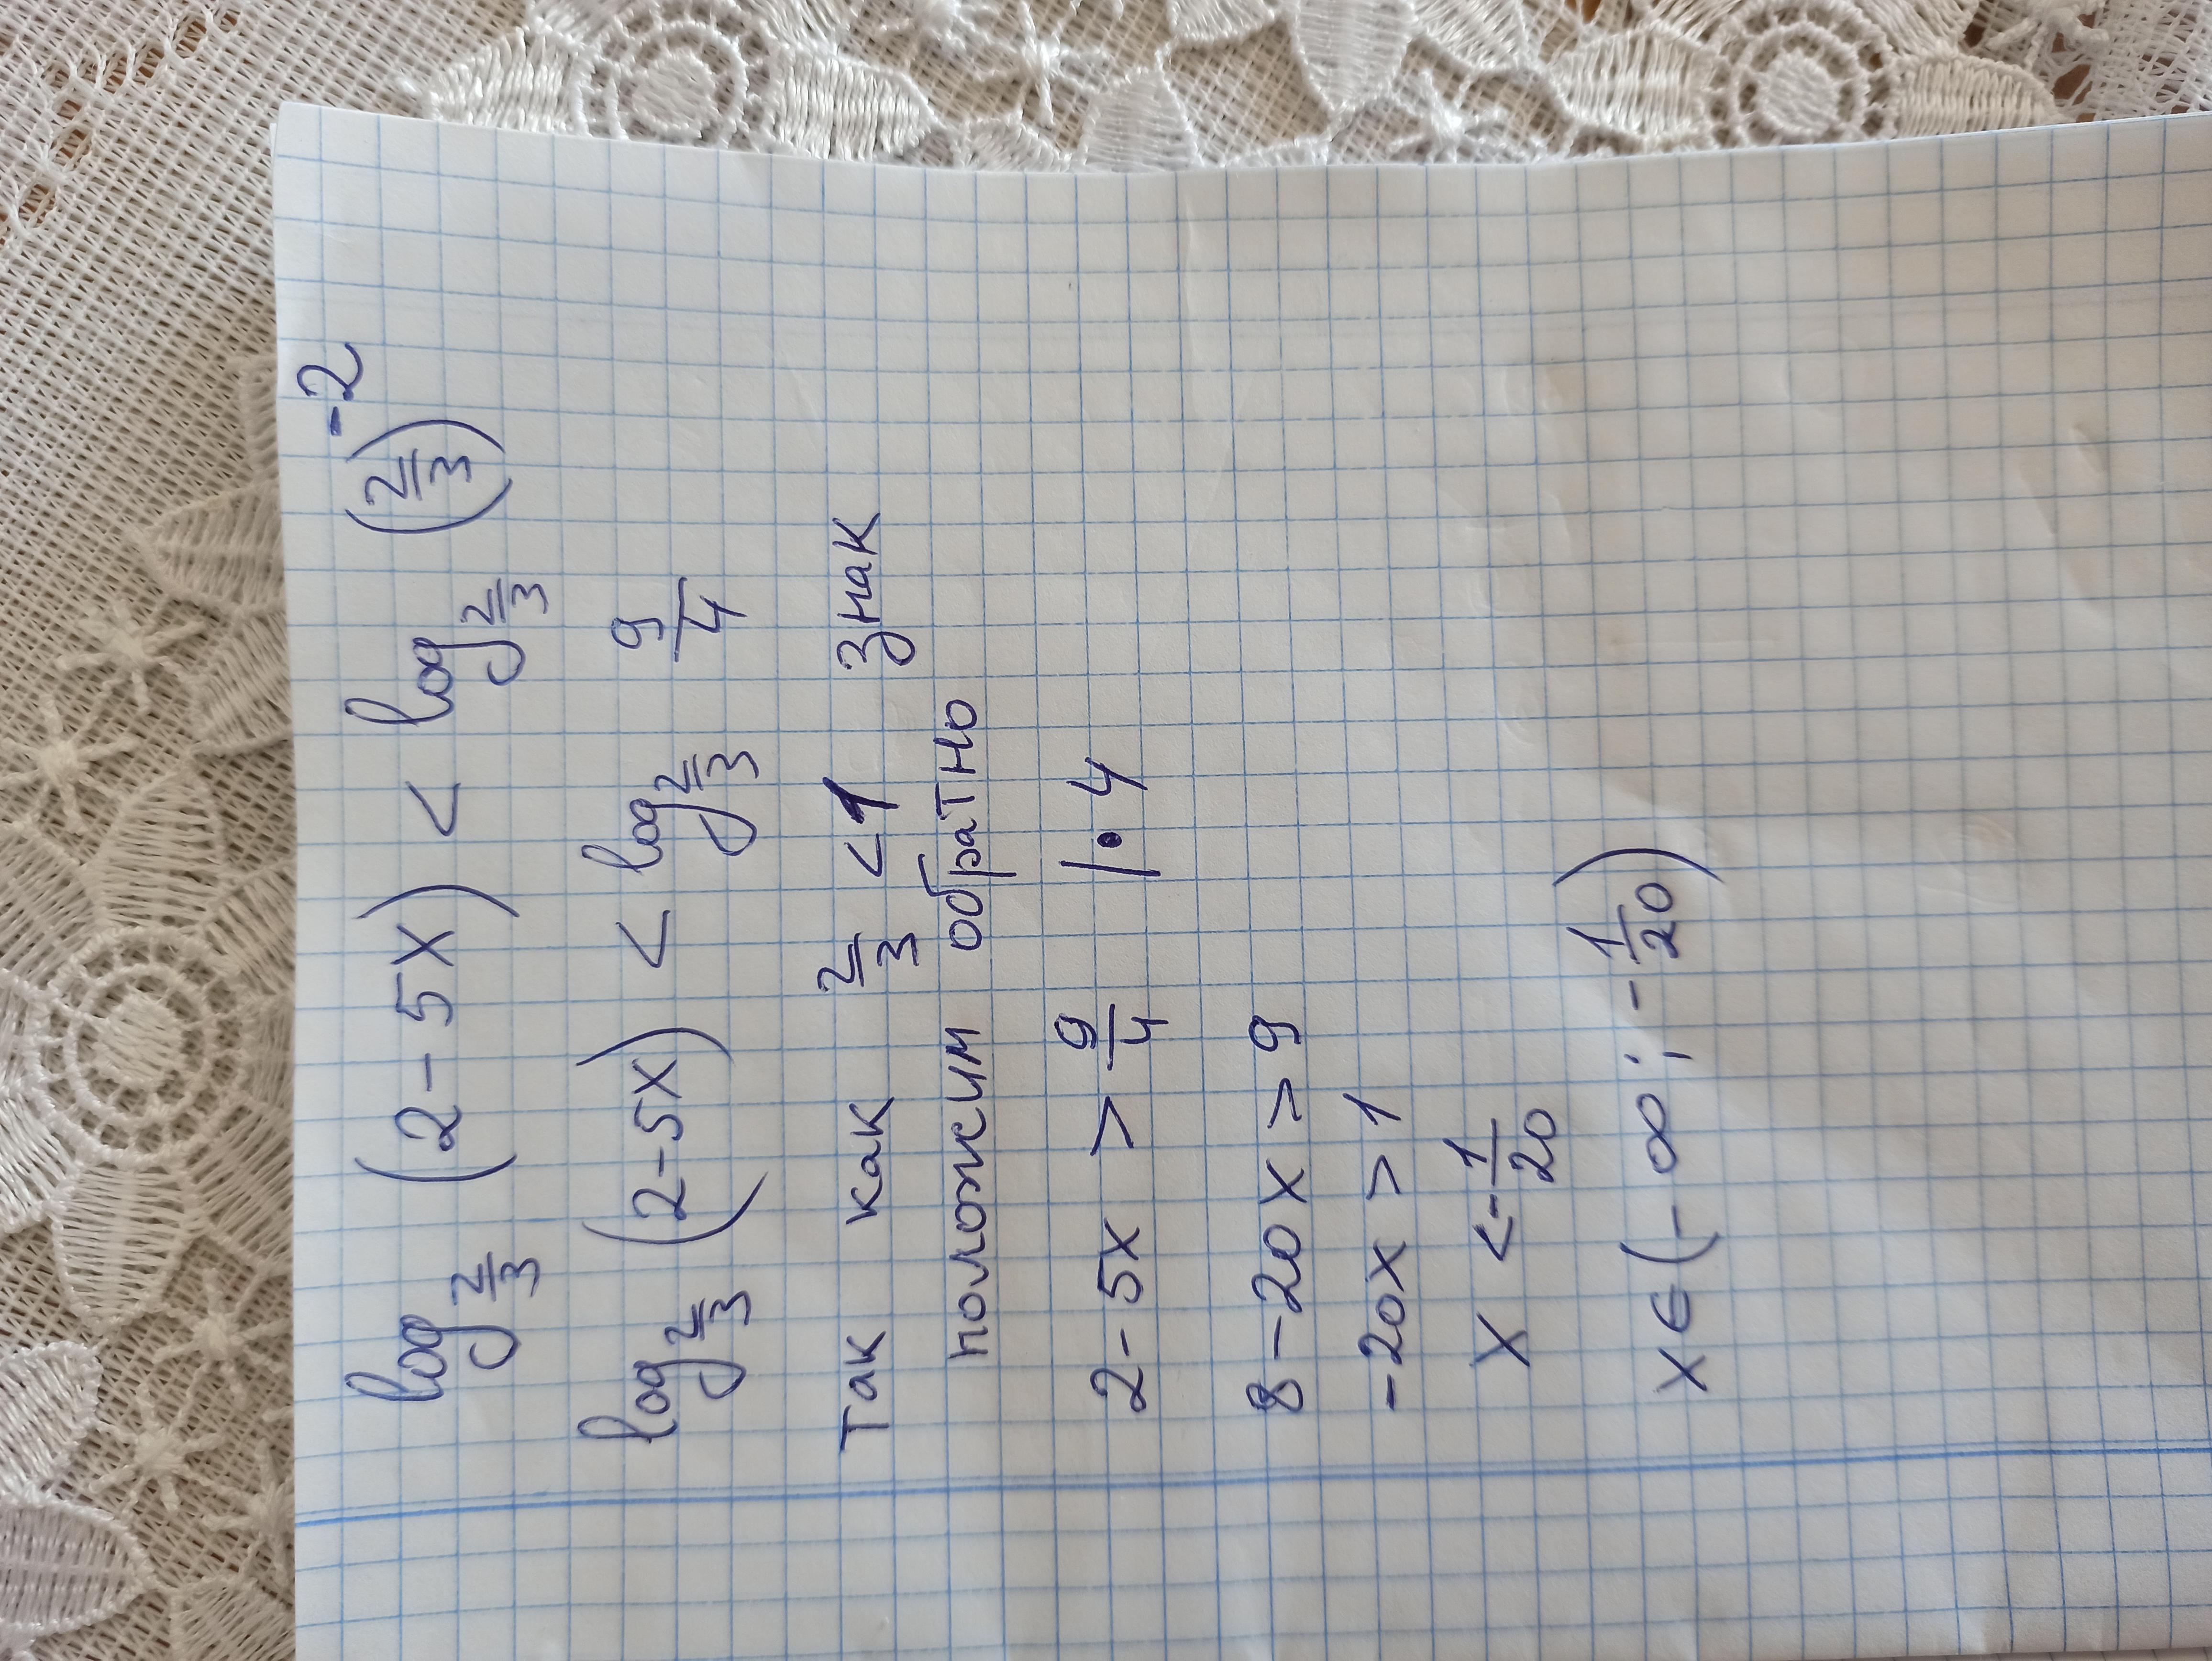 log 2/3 (2 - 5x) < log 2/3 (2/3)^-2
log 2/3 (2-5x) < log 2/3 9/4
Так как 2/3 <1 знак
положим обратно
2 - 5x > 9/4 |•4
8 - 20x > 9
-20x > 1
x < - 1/20
x ∈ (- ∞ ; - 1/20)